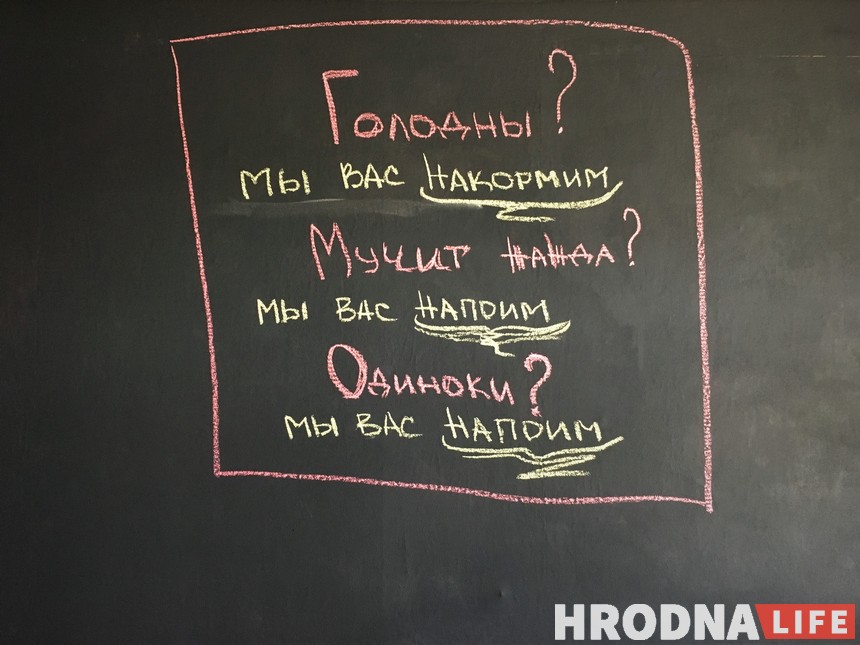 Голодны?
мы вас накормим
Мучит жажда?
мы вас напоим
Одиноки?
мы вас напоим
HRODNA LIFE